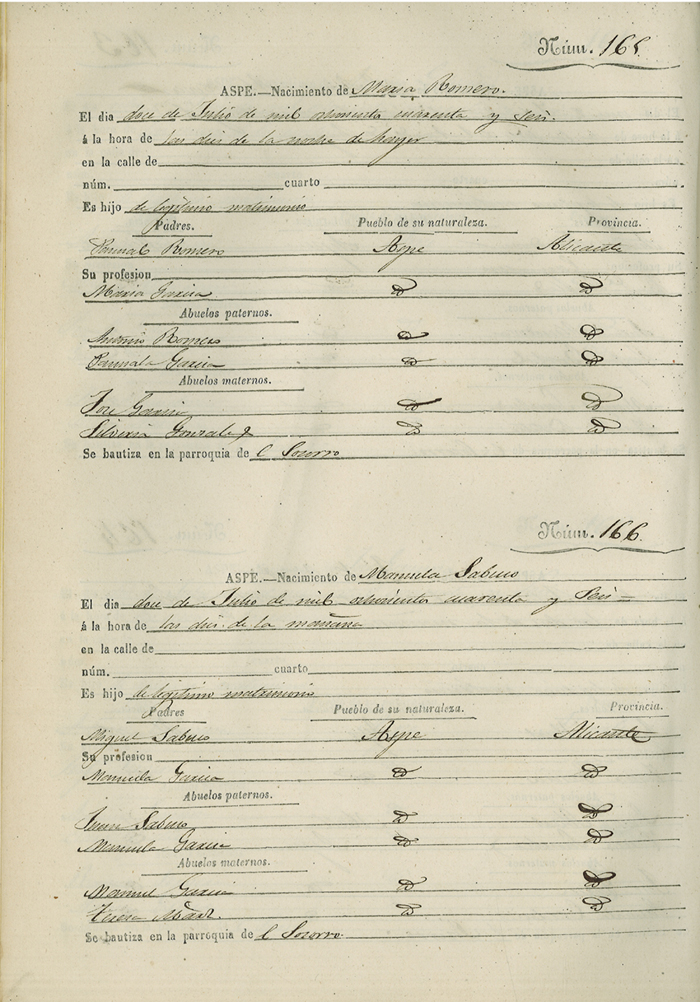 Núm. 165
ASPE.—Nacimiento de Maria Romero.
El dia doce de Julio de mil ochocientos cuarenta y seis.
á la hora de las dies de la noche de hayer
en la calle de
núm. cuarto
Es hijo de legitimo matrimonio
Padres. Pueblo de su naturaleza. Provincia.
Romero Aspe Alicante
Su profesion
Maria Garcia id id
Abuelos paternos.
Antonio Romero id id
Garcia id id
Abuelos maternos.
Jose Garcia id id
Silveria Gonzalez id id
Se bautiza en la parroquia de el Socorro
Núm. 166.
ASPE.—Nacimiento de Manuela Sabuco
El dia doce de Julio de mil ochocientos cuarenta y seis
á la hora de las dies de la mañana
en la calle de
núm. cuarto
Es hijo de legitimo matrimonio
Padres Pueblo de su naturaleza. Provincia.
Miguel Sabuco Aspe Alicante
Su profesion
Manuela Garcia id id
Abuelos paternos.
Juan Sabuco id id
Manuela Garcia id id
Abuelos maternos.
Manuel Garcia id id
Teresa id id
Se bautiza en la parroquia de el Socorro.